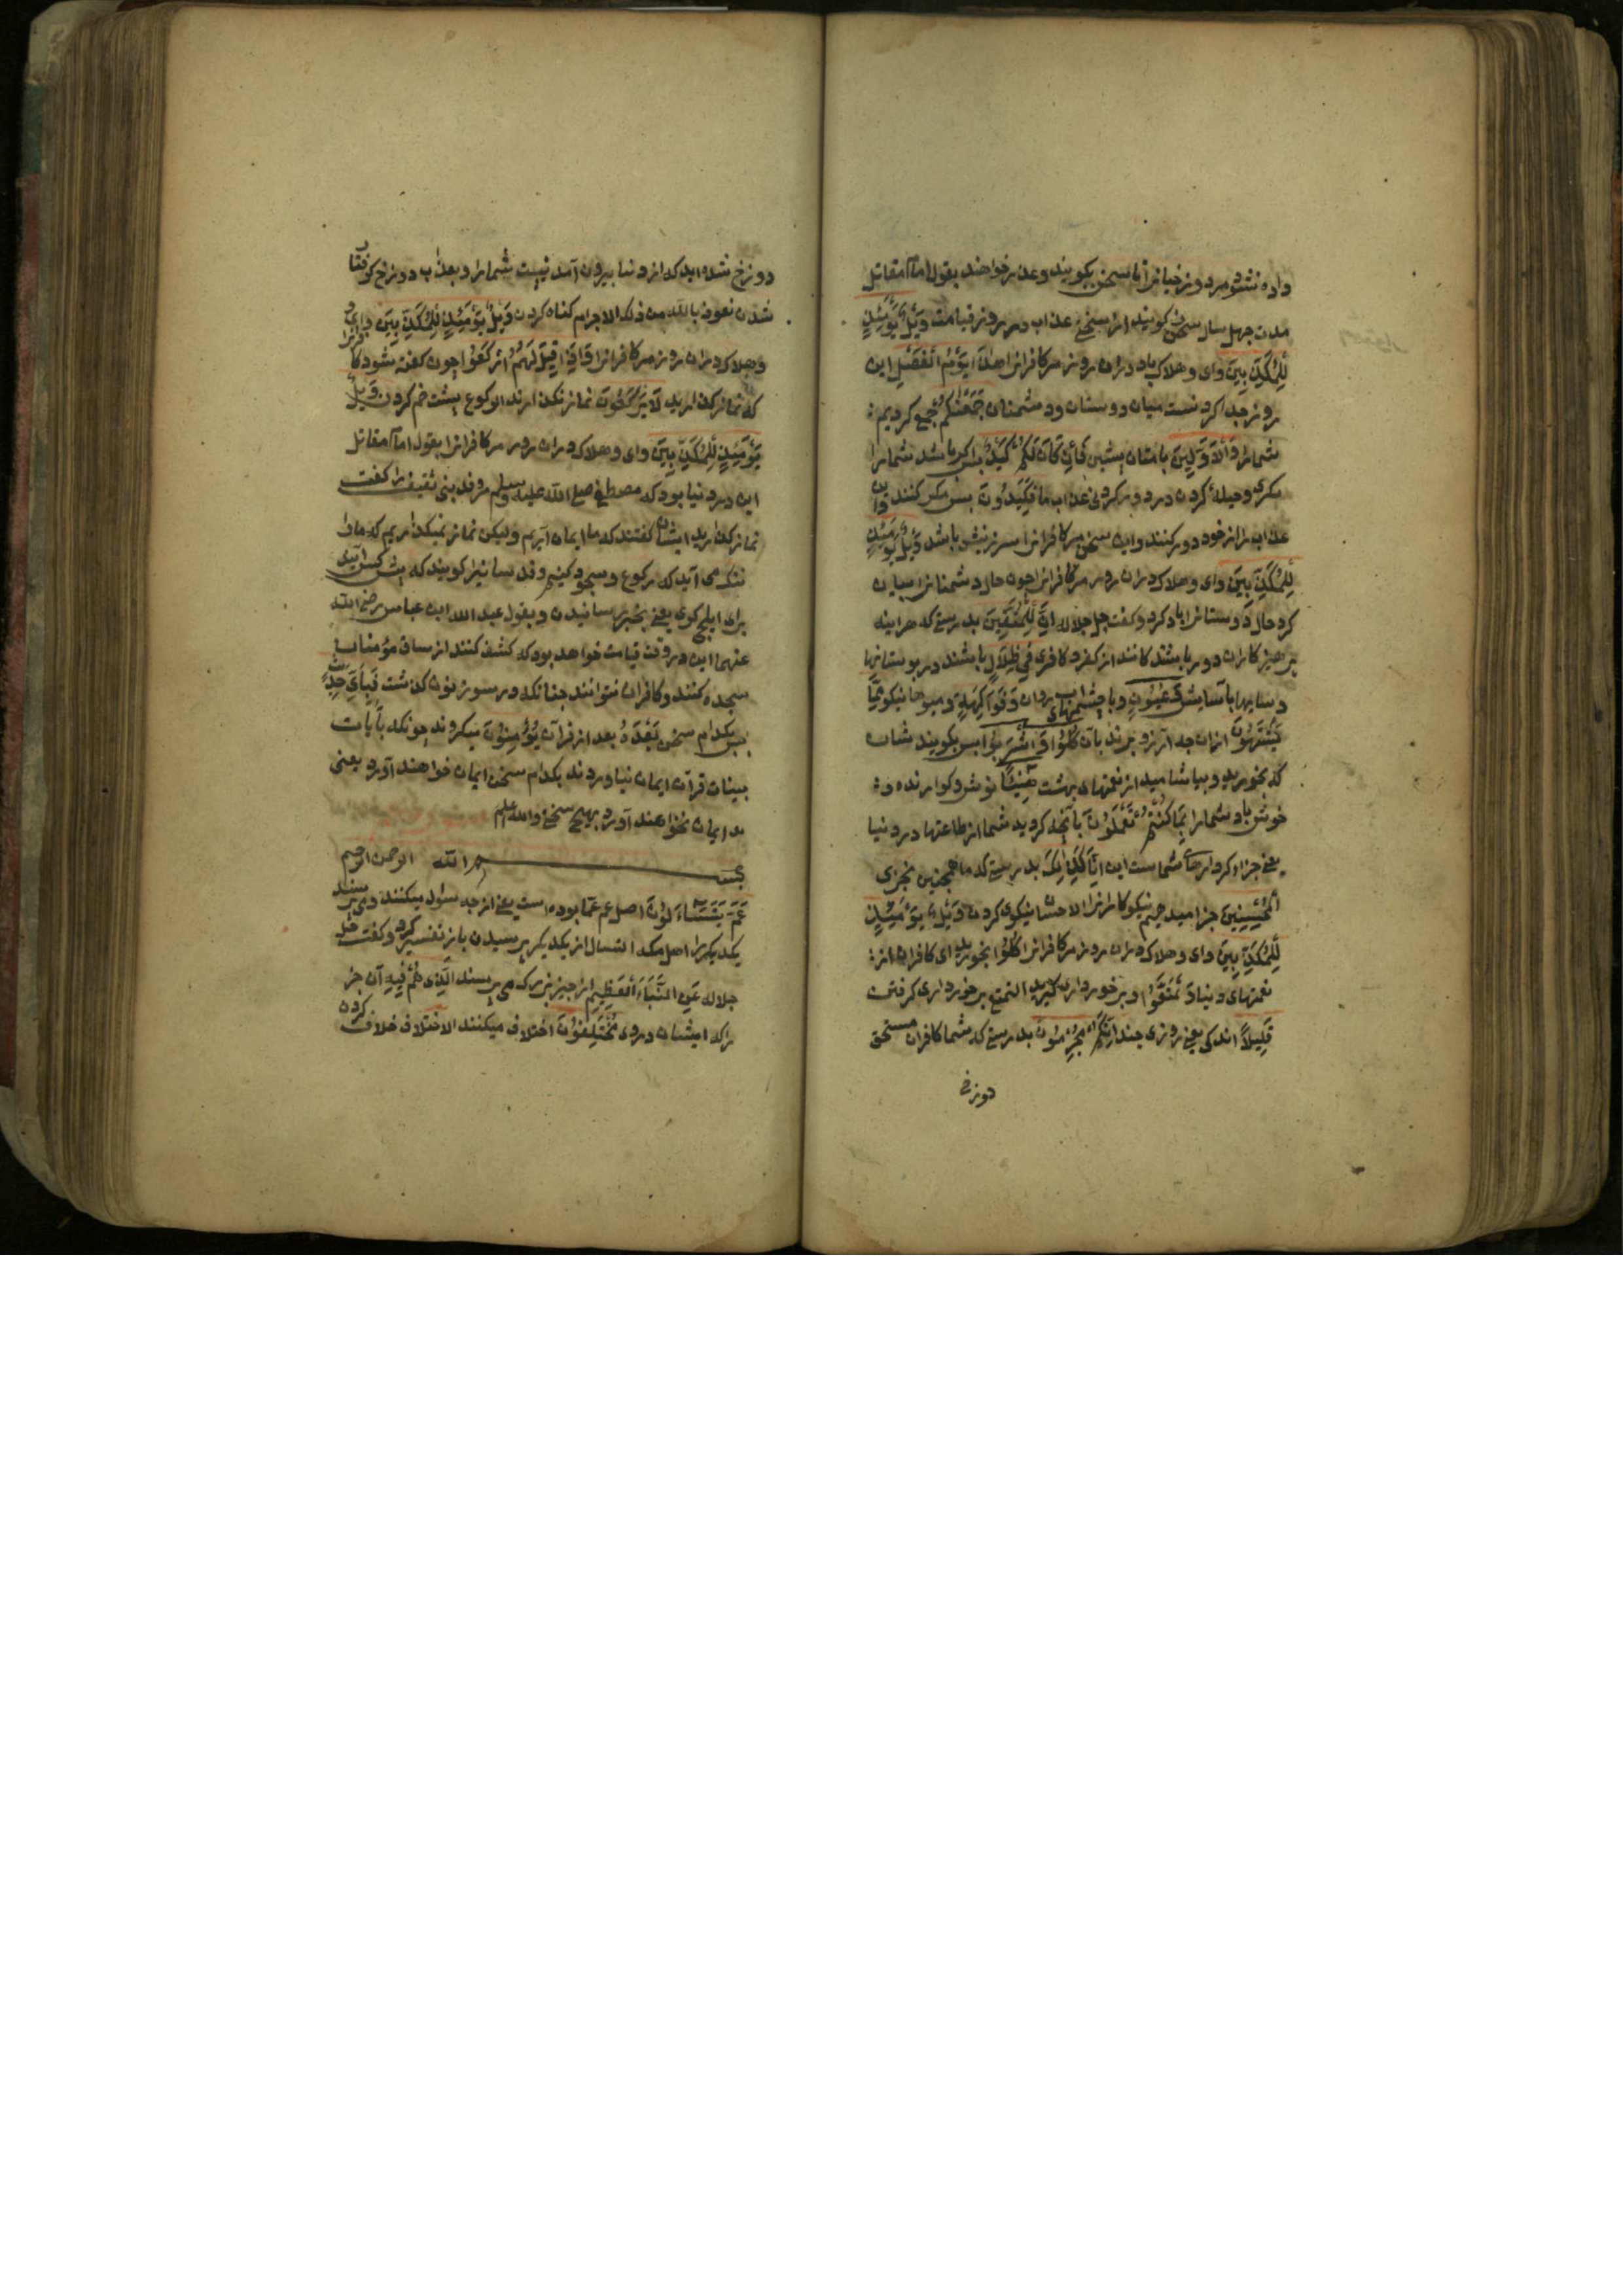 داده نشود مر دوزخیانرا تا سخن بکویند و عذر خواهند بقول امام مقاتل
مدت چهل سال سخن نکویند از سختئ عذاب در روز قیامت وَیْلٌ یَوْمَئِذٍ
لِلْمُکَذِّبِینَ وای و هلاک باد دران روز مر کافرانرا هٰذَا یَوْمُ الْفَصْلِ این
روز جدا کردنست میان دوستان و دشمنان جَمَعْنٰکُمْ جمع کردیم
شمارا وَالْاَوَّلِینَ با امتان پیشین فَاِنْ کَانَ لَکُمْ کَیْدٌ پس اکر باشد شمارا
مکری و حیلهٔ کردن در دور کردن عذاب ما فَکِیدُونِ پس مکر کنند و این
عذاب را از خود دور کنند و این سخن مر کافرانرا سرزنش باشد وَیْلٌ یَوْمَئِذٍ
لِلْمُکَذِّبِینَ وای و هلاک دران روز مر کافرانرا چون حال دشمنانرا بیان
کرد حال دوستانرا یاد کرد و کفت جل جلاله اِنَّ الْمُتَّقِینَ بدرستی که هر اینه
پرهیزکاران دور باشندکانند از کفر و کافری فِی ظِلَالٍ باشند در بوستانها
و سایهها با آسایش وَعُیُونٍ و با چشمهای آب روان وَفَوَاکِهَ و میوها نیکو مِمَّا
یَشْتَهُونَ ازان چه آرزو برند بآن کُلُوا وَاشْرَبُوا پس بکویند شان
که بخورید و بیاشامید از نعمتهای بهشت هَنِیئًا نوش و کوارنده و
خوش باد شمارا بِمَا کُنْتُمْ تَعْمَلُونَ بآنچه کردید شما از طاعتها در دنیا
یعنی جزاء کردارهاء شما است این اِنَّا کَذٰلِکَ بدرستی که ما همچنین نَجْزِی
الْمُحْسِنِینَ جزا میدهیم نیکوکارانرا الاحسان نیکوی کردن وَیْلٌ یَوْمَئِذٍ
لِلْمُکَذِّبِینَ وای و هلاک دران روز مر کافرانرا کُلُوا بخورید ای کافران از
نعمتهای دنیا وَتَمَتَّعُوا و برخورداری کیرید التمتع برخورداری کرفتن
قَلِیلًا اندکی یعنی روزی چند اِنَّکُمْ مُجْرِمُونَ بدرستی که شما کافران مستحق
دوزخ
دوزخ شده اید که از دنیا بیرون آمد نیست شمارا و بعذاب دوزخ کرفتار
شدن نعوذ بالله من ذلک الاجرام کناه کردن وَیْلٌ یَوْمَئِذٍ لِلْمُکَذِّبِینَ وای
و هلاک دران روز مر کافرانرا وَاِذَا قِیلَ لَهُمُ ارْکَعُوا چون کفته شود کافرانرا
که نماز کذارید لَا یَرْکَعُونَ نماز نکذارند الرکوع پشت خم کردن وَیْلٌ
یَوْمَئِذٍ لِلْمُکَذِّبِینَ وای و هلاک دران روز مر کافرانرا بقول امام مقاتل
این در دنیا بود که مصطفی صلی الله علیه وسلم وفد بنی ثقیف را کفت
نماز کذارید ایشان کفتند که ما ایمان آریم ولیکن نماز نمیکذاریم که مارا
ننک می آید که رکوع و سجود کنیم وفد رسانیرا کویند که پیش کس آیدی
برای ایلچی کوی یعنی بخبر رسانیدن و بقول عبد الله ابن عباس رضی الله
عنهما این در وقت قیامت خواهد بود که کشف کنند از ساق مؤمنان
سجده کنند و کافران نتوانند چنانکه در سوره نون کذشت فَبِاَیِّ حَدِیثٍ
پس بکدام سخن بَعْدَهُ بعد از قرآن یُؤْمِنُونَ میکروند چونکه بآیات
بینات قرآن ایمان نیاوردند بکدام سخن ایمان خواهند آورد یعنی
ایمان نخواهند آورد بهیچ سخنی والله اعلم
بسم الله الرحمن الرحیم
عَمَّ یَتَسَاءَلُونَ اصل عم عما بوده است یعنی از چه سئوال میکنند و می پرسند
یکدیکررا التسال از یکدیکر پرسیدن باز تفسیر کرد و کفت جل
جلاله عَنِ النَّبَاِ الْعَظِیمِ از چیز بزرک می پرسند اَلَّذِی هُمْ فِیهِ آن خبر
را که ایشان دروی مُخْتَلِفُونَ اختلاف میکنند الاختلاف خلاف کردن